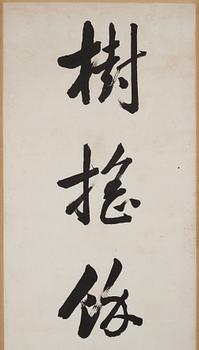 樹搖餘